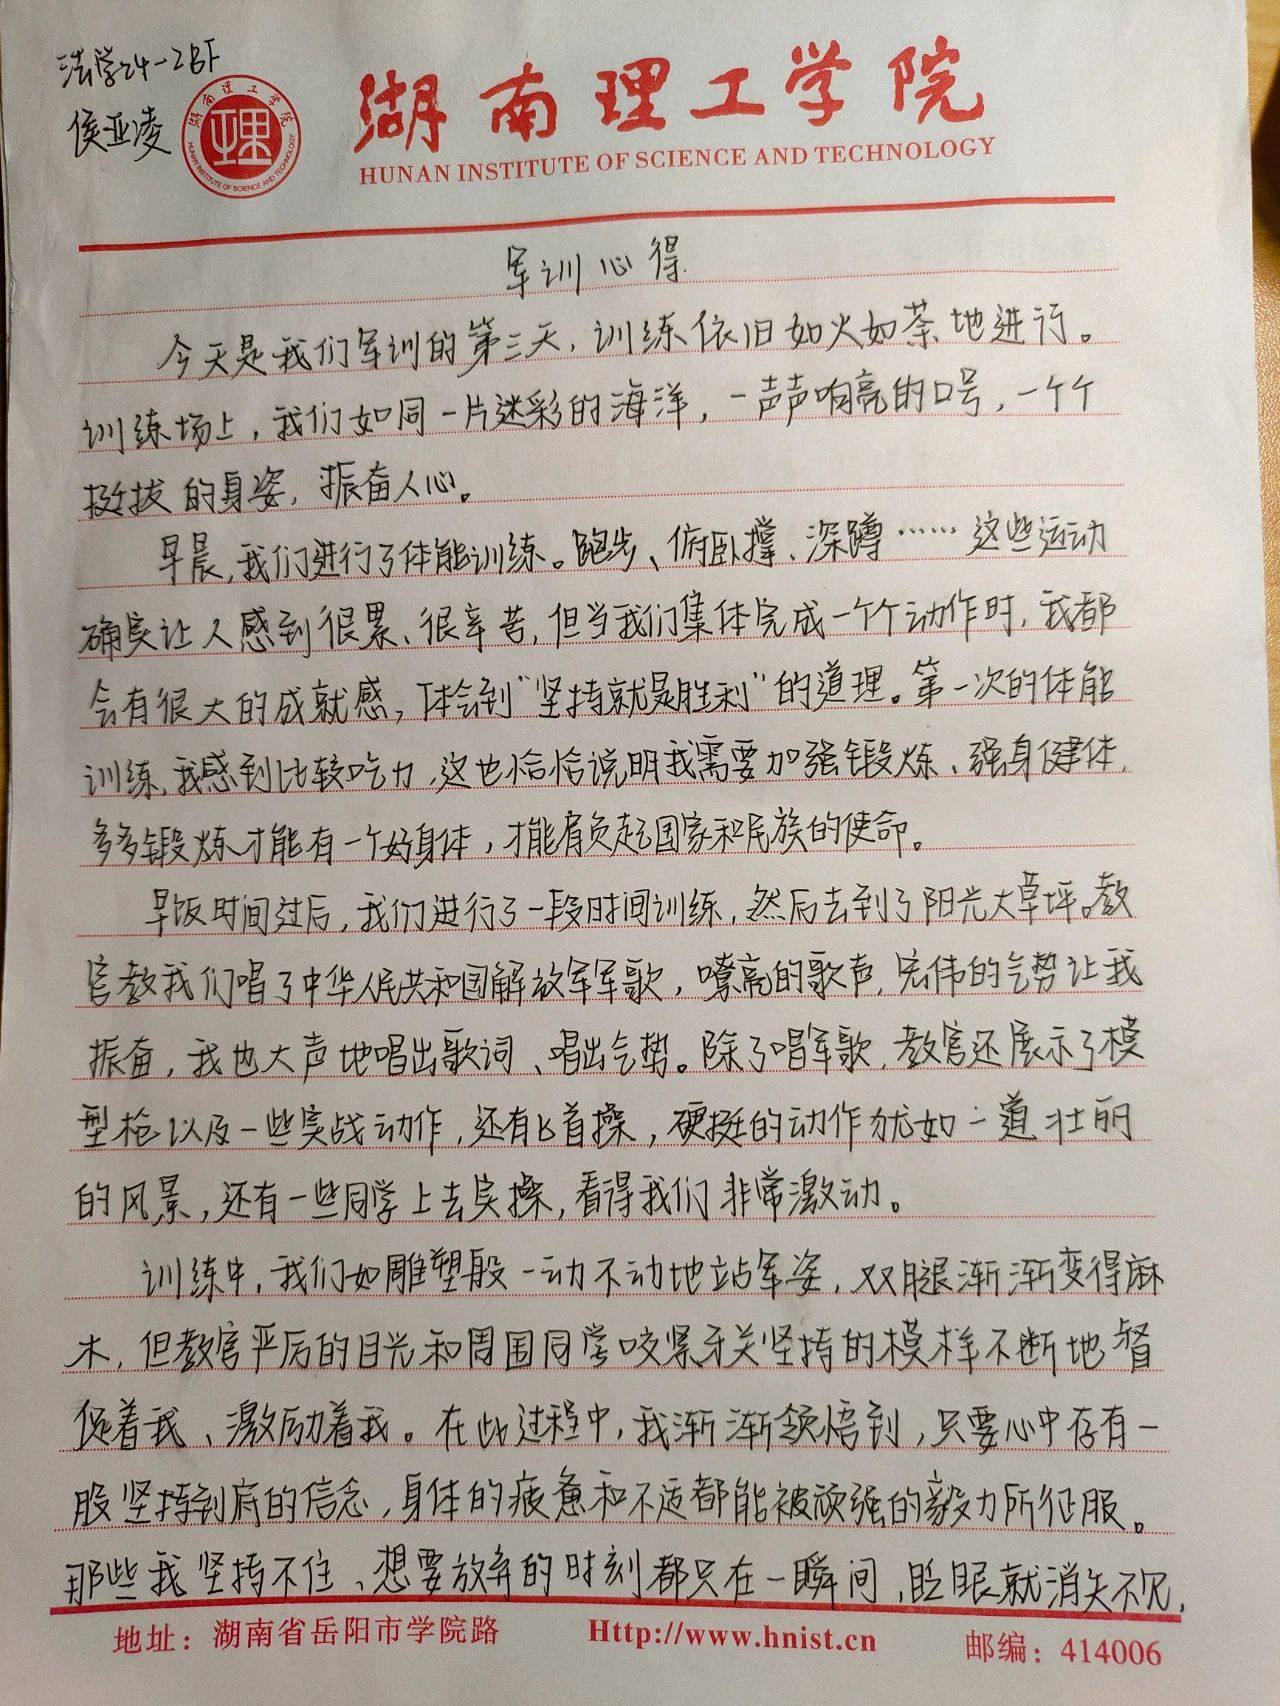 法学24-2BF
侯亚凌
湖南理工学院
HUNAN INSTITUTE OF SCIENCE AND TECHNOLOGY
军训心得
今天是我们军训的第三天，训练依旧如火如荼地进行。
训练场上，我们如同一片迷彩的海洋，一声声响亮的口号，一个个
挺拔的身姿，振奋人心。
早晨，我们进行了体能训练。跑步、俯卧撑、深蹲……这些运动
确实让人感到很累、很辛苦，但当我们集体完成一个个动作时，我都
会有很大的成就感，体会到“坚持就是胜利”的道理。第一次的体能
训练，我感到比较吃力，这也恰恰说明我需要加强锻炼、强身健体，
多多锻炼才能有一个好身体，才能肩负起国家和民族的使命。
早饭时间过后，我们进行了一段时间训练，然后去到了阳光大草坪。教
官教我们唱了中华人民共和国解放军军歌，嘹亮的歌声，宏伟的气势让我
振奋，我也大声地唱出歌词、唱出气势。除了唱军歌，教官还展示了模
型枪以及一些实战动作，还有匕首操，硬挺的动作犹如一道壮丽
的风景，还有一些同学上去实操，看得我们非常激动。
训练中，我们如雕塑般一动不动地站军姿，双腿渐渐变得麻
木，但教官严厉的目光和周围同学咬紧牙关坚持的模样不断地督
促着我、激励着我。在此过程中，我渐渐领悟到，只要心中存有一
股坚持到底的信念，身体的疲惫和不适都能被顽强的毅力所征服。
那些我坚持不住、想要放弃的时刻都只在一瞬间，眨眼就消失不见，
地址：湖南省岳阳市学院路 Http://www.hnist.cn 邮编：414006